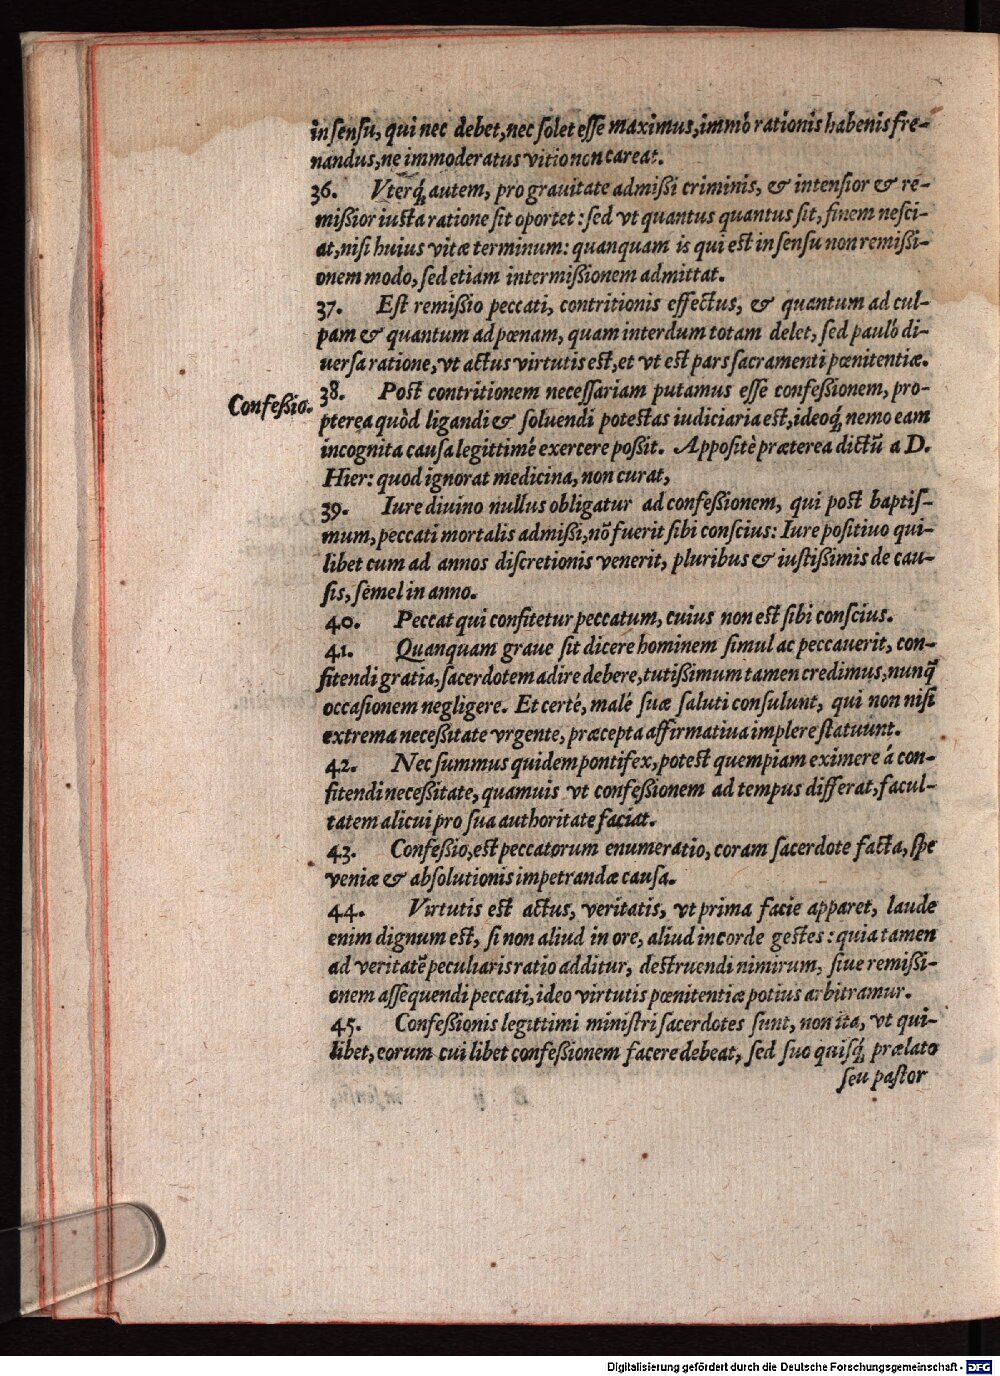 in sensu, qui nec debet, nec solet esse maximus, immò rationis habenis fre-
nandus, ne immoderatus vitio non careat.
36. Vterq́ autem, pro grauitate admißi criminis, & intensior & re-
mißior iusta ratione sit oportet: sed vt quantus quantus sit, finem nesci-
at, nisi huius vitæ terminum: quanquam is qui est in sensu non remißi-
onem modo, sed etiam intermißionem admittat.
37. Est remißio peccati, contritionis effectus, & quantum ad cul-
pam & quantum ad pœnam, quam interdum totam delet, sed pauló di-
uersa ratione, vt actus virtutis est, et vt est pars sacramenti pœnitentiæ.
Confeßio.
38. Post contritionem necessariam putamus esse confeßionem, pro-
pterea quòd ligandi & soluendi potestas iudiciaria est, ideoq́ nemo eam
incognita causa legittimé exercere poßit. Appositè præterea dictū a D.
Hier: quod ignorat medicina, non curat,
39. Iure diuino nullus obligatur ad confeßionem, qui post baptis-
mum, peccati mortalis admißi, nō fuerit sibi conscius: Iure positiuo qui-
libet cum ad annos discretionis venerit, pluribus & iustißimis de cau-
sis, semel in anno.
40. Peccat qui confitetur peccatum, cuius non est sibi conscius.
41. Quanquam graue sit dicere hominem simul ac peccauerit, con-
fitendi gratia, sacerdotem adire debere, tutißimum tamen credimus, nunq̄
occasionem negligere. Et certé, malé suæ saluti consulunt, qui non nisi
extrema neceßitate vrgente, præcepta affirmatiua implere statuunt.
42. Nec summus quidem pontifex, potest quempiam eximere á con-
fitendi neceßitate, quamuis vt confeßionem ad tempus differat, facul-
tatem alicui pro sua authoritate faciat.
43. Confeßio, est peccatorum enumeratio, coram sacerdote facta, spe
veniæ & absolutionis impetrandæ causa.
44. Virtutis est actus, veritatis, vt prima facie apparet, laude
enim dignum est, si non aliud in ore, aliud in corde gestes: quia tamen
ad veritatē peculiaris ratio additur, destruendi nimirum, siue remißi-
onem assequendi peccati, ideo virtutis pœnitentiæ potius arbitramur.
45. Confeßionis legittimi ministri sacerdotes sunt, non ita, vt qui-
libet, eorum cui libet confeßionem facere debeat, sed suo quisq́ prælato
seu pastor
Digitalisierung gefördert durch die Deutsche Forschungsgemeinschaft - DFG